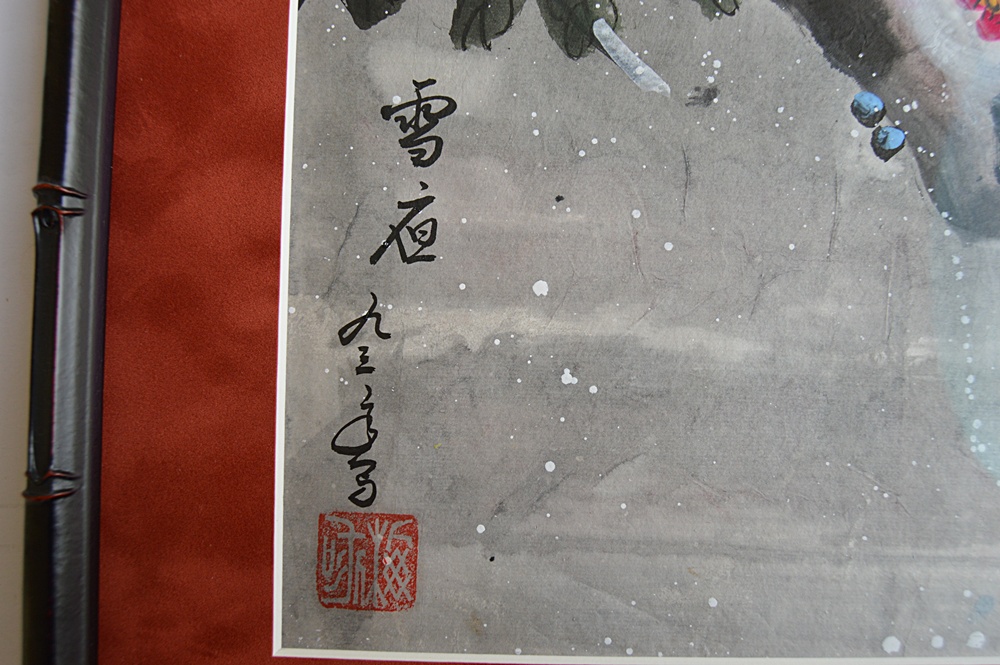 雪夜
九三年写